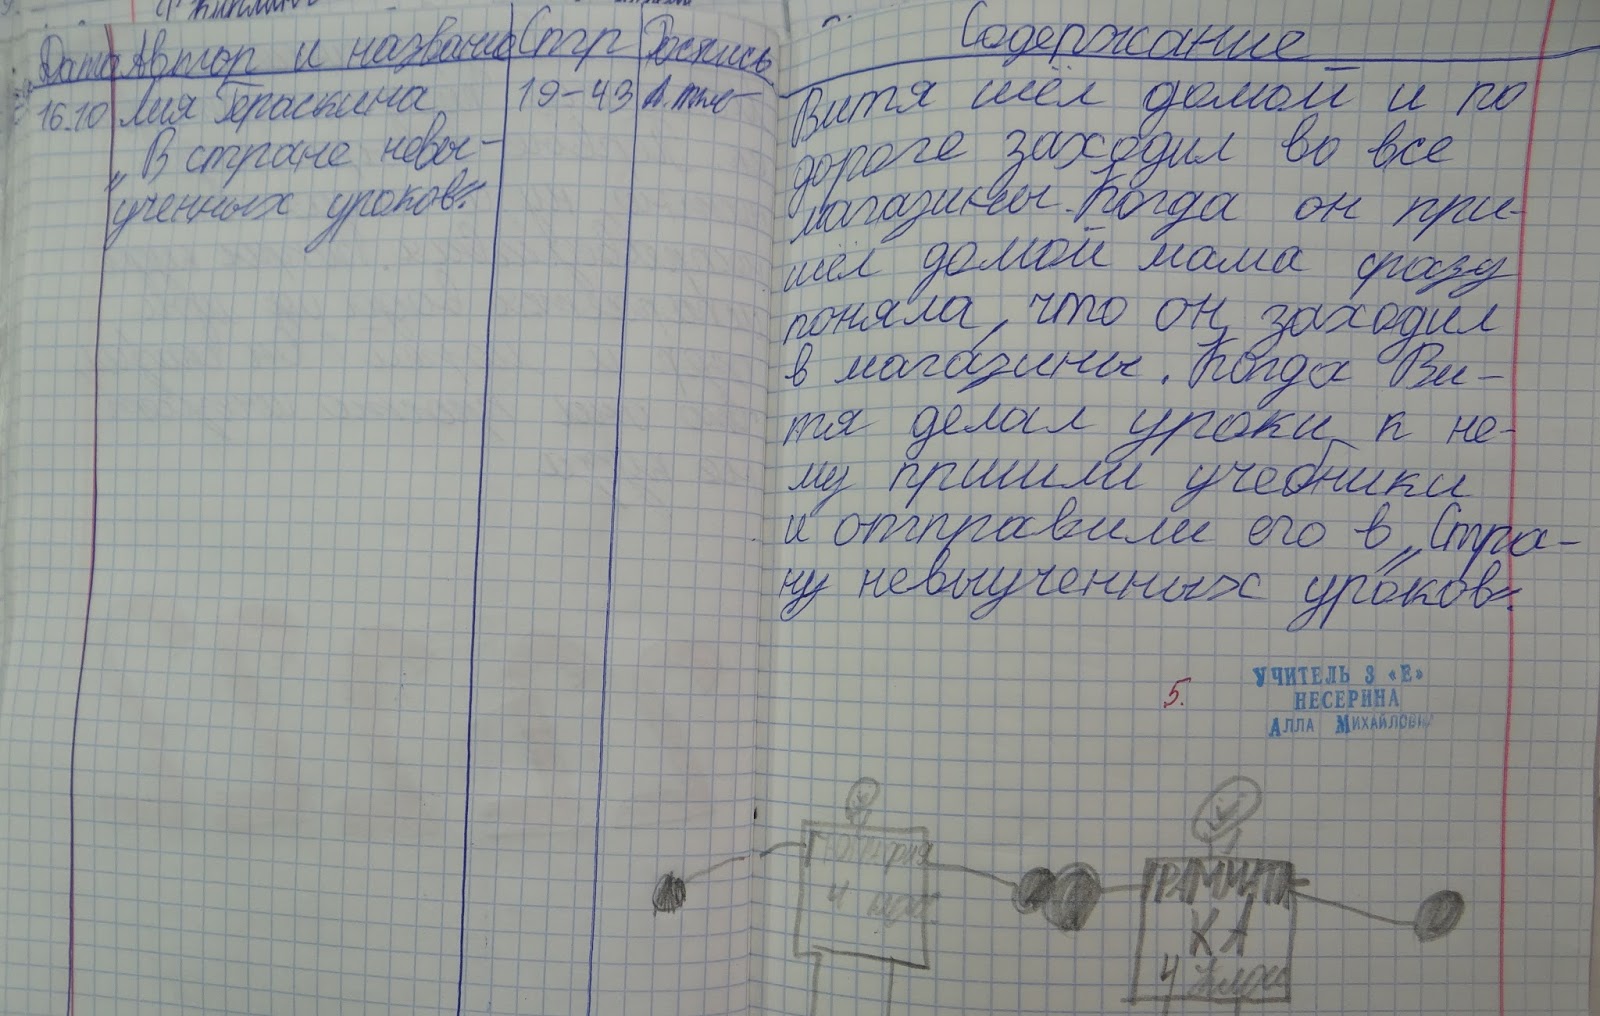 Дата Автор и название Стр Роспись
16.10 Лия Гераскина 19-43
„В стране невы-
ученных уроков“.
Содержание
Витя шёл домой и по
дороге заходил во все
магазины. Когда он при-
шёл домой мама сразу
поняла, что он заходил
в магазины. Когда Ви-
тя делал уроки к не-
му пришли учебники
и отправили его в „Стра-
ну невыученных уроков“.
5.
УЧИТЕЛЬ 3 «Е»
НЕСЕРИНА
АЛЛА МИХАЙЛОВНА
4
ГРАММАТИ
КА
4 класс